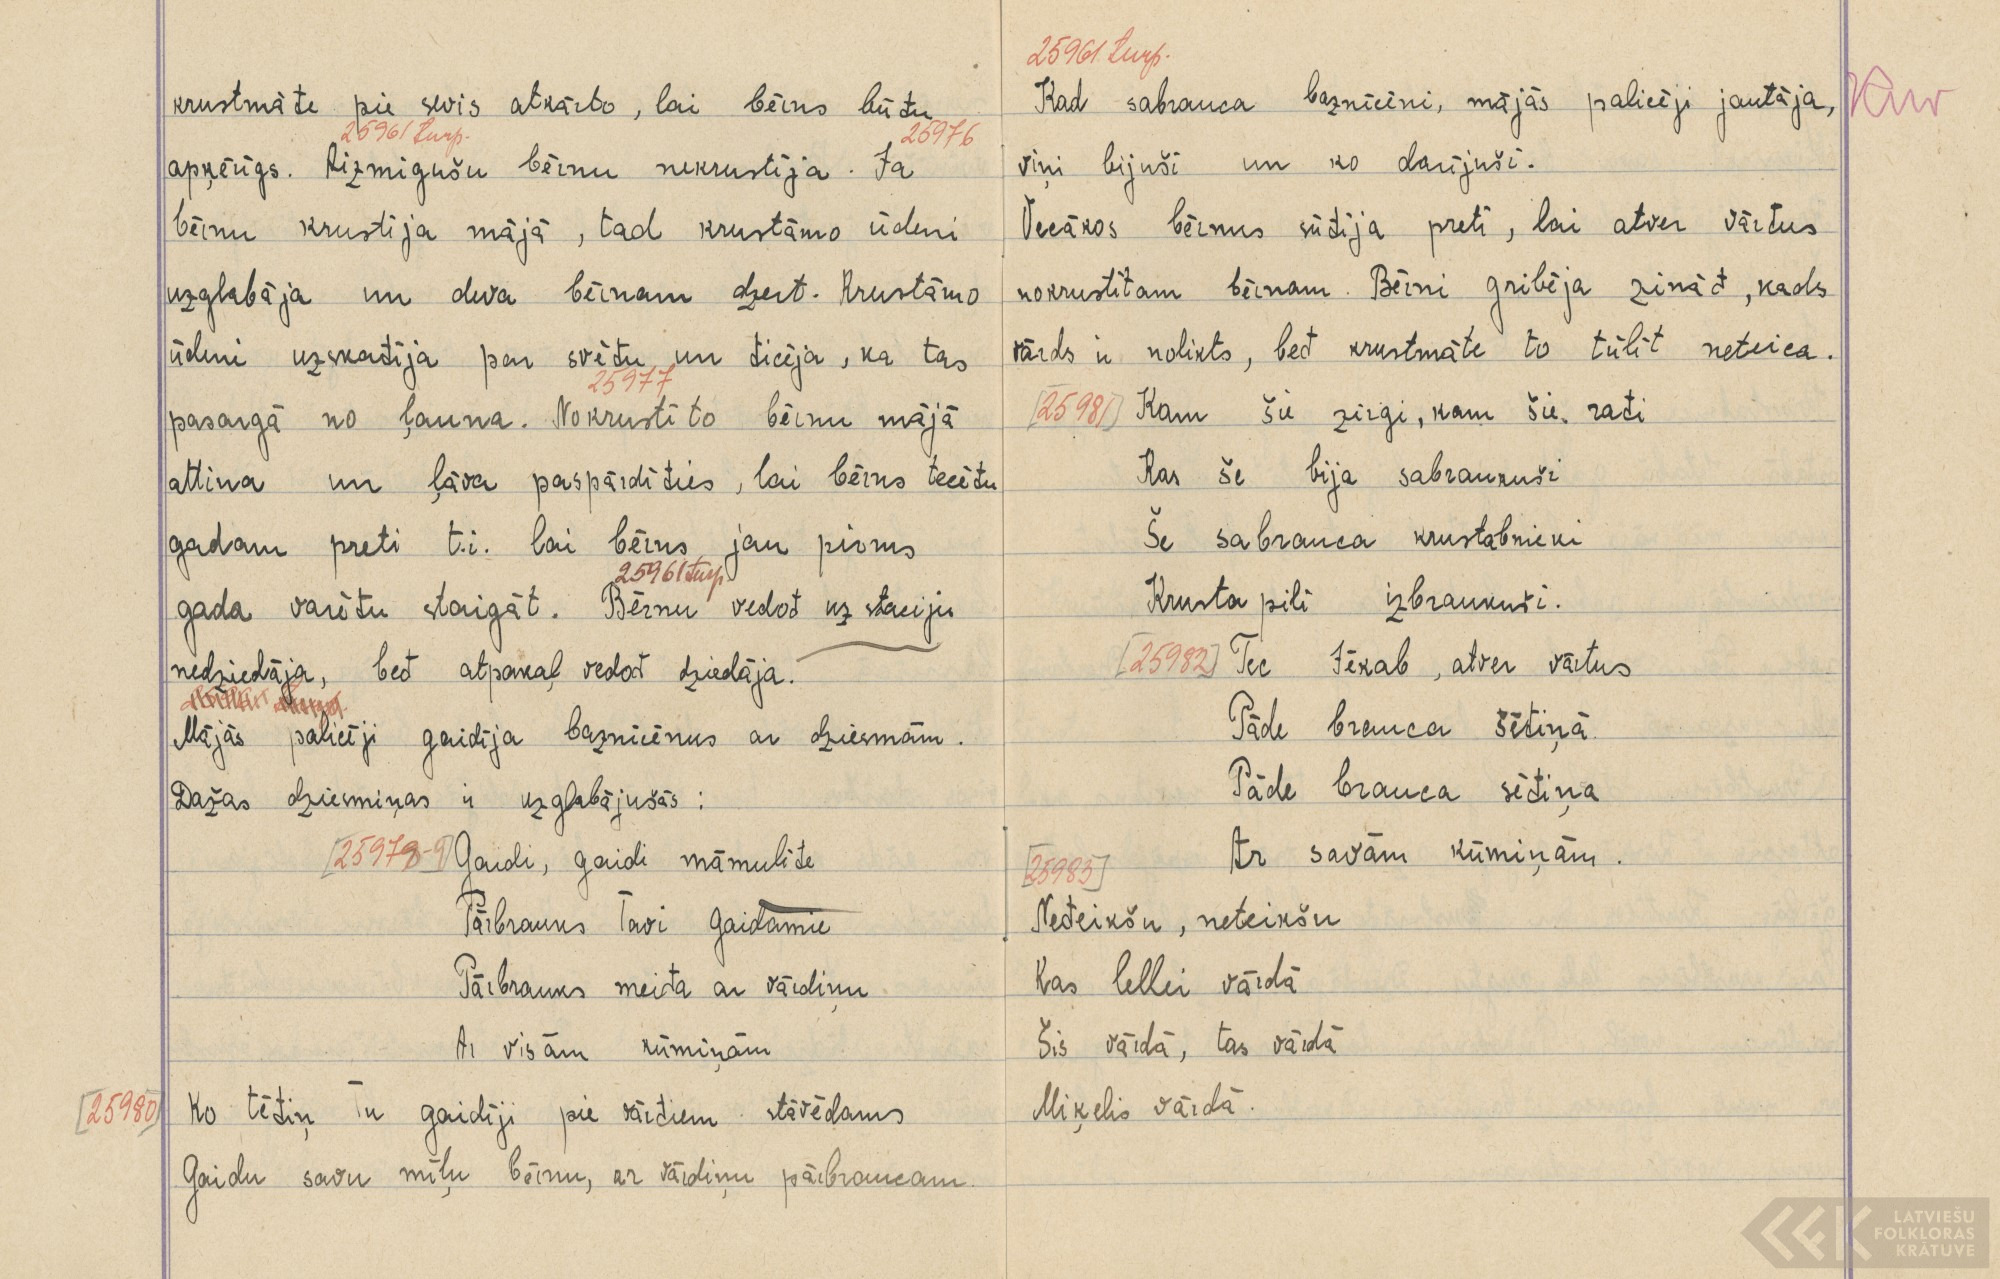 krustmāte pie sevis atkārto, lai bērns būtu
25961 turp. 25976
apķērīgs. Aizmigušu bērnu nekrustīja. Ja
bērnu krustīja mājā, tad krustāmo ūdeni
uzglabāja un deva bērnam dzert. Krustāmo
ūdeni uzskatīja par svētu un ticēja, ka tas
25977
pasargā no ļauna. Nokrustīto bērnu mājā
attina un ļāva paspārdīties, lai bērns tecētu
gadam preti t.i. lai bērns jau pirms
25961 turp.
gada varētu staigāt. Bērnu vedot uz staciju
nedziedāja, bet atpakaļ vedot dziedāja.
Mājās palicēji gaidīja baznīcēnus ar dziesmām.
Dažas dziesmiņas ir uzglabājušās:
[25978-9] Gaidi, gaidi māmulīte
Pārbrauks Tavi gaidāmie
Pārbrauks meita ar vārdiņu
Ar visām kūmiņām
[25980] Ko tētiņ Tu gaidīji pie vārtiem stāvēdams
Gaidu savu mīļu bērnu, ar vārdiņu pārbraucam.
25961 turp.
Kad sabrauca baznīcēni, mājās palicēji jautāja,
viņi bijuši un ko darījuši.
Vecākos bērnus sūtīja pretī, lai atver vārtus
nokrustītam bērnam. Bērni gribēja zināt, kāds
vārds ir nolikts, bet krustmāte to tūlīt neteica.
[25981] Kam šie zirgi, kam šie rati
Kas še bija sabraukuši
Še sabrauca krustabnieki
Krusta pilī izbraukuši.
[25982] Tec Jēkab, atver vārtus
Pāde brauca sētiņā
Pāde brauca sētiņa
Ar savām kūmiņām.
[25983]
Neteikšu, neteikšu
Kas lellei vārdā
Šis vārdā, tas vārdā
Miķelis vārdā.
LATVIEŠU
FOLKLORAS
KRĀTUVE